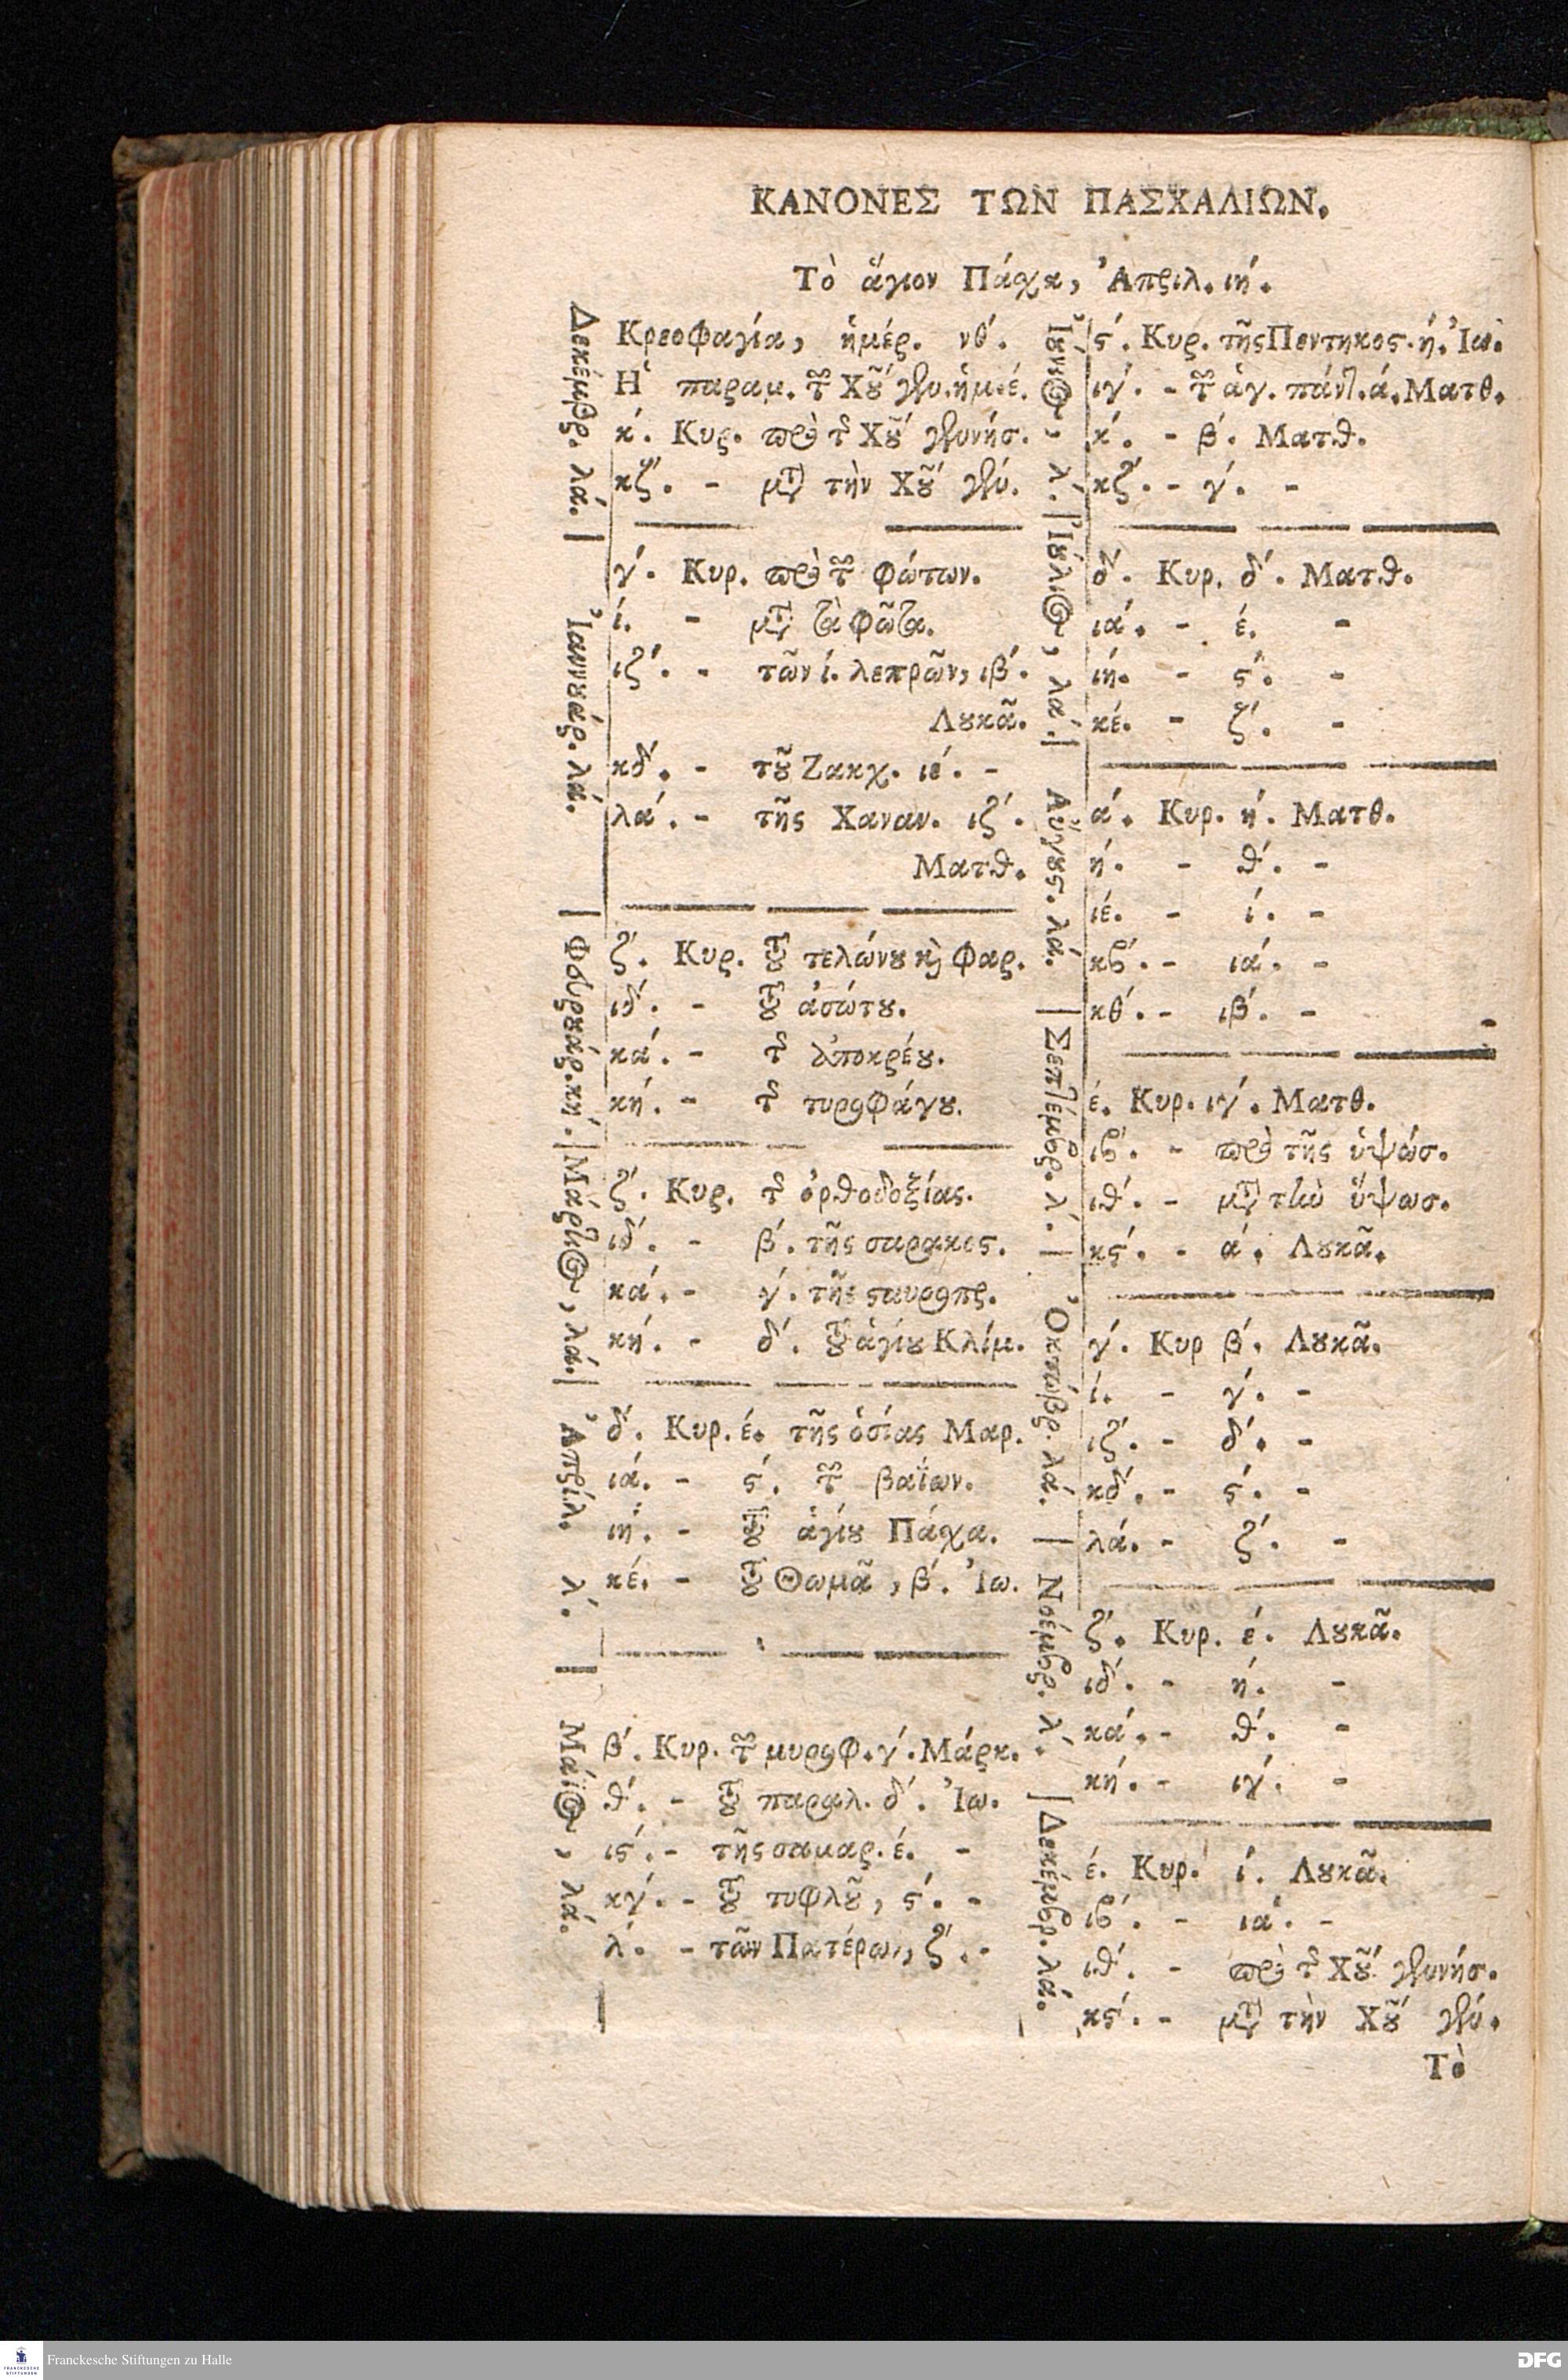 ΚΑΝΟΝΕΣ ΤΩΝ ΠΑΣΧΑΛΙΩΝ.
Τὸ ἅγιον Πάχα, Ἀπριλ. ιή.
Δεκέμβρ. λά.
Κρεοφαγία, ἡμέρ. νθ΄.
Ἡ παραμ. τῶν Χȣ͂ γεν. ἡμ. έ.
κ΄. Κυρ. πρὸ τῆς Χȣ͂ γεννήσ.
κζ΄. - μετὰ τὴν Χȣ͂ γεν.
Ἰαννȣάρ. λά.
γ΄. Κυρ. πρὸ τῶν φώτων.
ί. - μετὰ τὰ φῶτα.
ιζ΄. - τῶν ί. λεπρῶν, ιβ΄.
Λȣκᾶ.
κδ΄. - τȣ͂ Ζακχ. ιέ. -
λά. - τῆς Χαναν. ιζ΄.
Ματθ.
Φευρȣάρ. κή.
ζ΄. Κυρ. τȣ͂ τελώνȣ καὶ Φαρ.
ιδ΄. - τȣ͂ ἀσώτȣ.
κά. - τῆς ἀποκρέȣ.
κή. - τῆς τυροφάγȣ.
Μάρτιος, λά.
ζ΄. Κυρ. τῆς ὀρθοδοξίας.
ιδ΄. - β΄. τῆς σαρακοϛ.
κά. - γ΄. τῆς ϛαυροπρ.
κή. - δ΄. τȣ͂ ἁγίȣ Κλίμ.
Ἀπρίλ. λ΄.
δ΄. Κυρ. έ. τῆς ὁσίας Μαρ.
ιά. - ϛ΄. τῶν βαΐων.
ιή. - τȣ͂ ἁγίȣ Πάχα.
κέ. - τȣ͂ Θωμᾶ, β΄. Ἰω.
Μάϊος, λά.
β΄. Κυρ. τῶν μυροφ. γ΄. Μάρκ.
θ΄. - τȣ͂ παραλ. δ΄. Ἰω.
ιϛ΄. - τῆς σαμαρ. έ. -
κγ΄. - τȣ͂ τυφλȣ͂, ϛ΄. -
λ΄. - τῶν Πατέρων, ζ΄. -
Ἰȣ́νιος, λ΄.
ϛ΄. Κυρ. τῆς Πεντηκοϛ. ή. Ἰω.
ιγ΄. - τῶν ἁγ. πάντ. ά. Ματθ.
κ΄. - β΄. Ματθ.
κζ΄. - γ΄. -
Ἰȣ́λιος, λά.
δ΄. Κυρ. δ΄. Ματθ.
ιά. - έ. -
ιή. - ϛ΄. -
κέ. - ζ΄. -
Αὔγȣϛ. λά.
ά. Κυρ. ή. Ματθ.
ή. - θ΄. -
ιέ. - ί. -
κβ΄. - ιά. -
κθ΄. - ιβ΄. -
Σεπτέμβρ. λ΄.
έ. Κυρ. ιγ΄. Ματθ.
ιβ΄. - πρὸ τῆς ὑψώσ.
ιθ΄. - μετὰ τὴν ὕψωσ.
κϛ΄. - ά. Λȣκᾶ.
Ὀκτώβρ. λά.
γ΄. Κυρ β΄. Λȣκᾶ.
ί. - γ΄. -
ιζ΄. - δ΄. -
κδ΄. - ϛ΄. -
λά. - ζ΄. -
Νοέμβρ. λ΄.
ζ΄. Κυρ. έ. Λȣκᾶ.
ιδ΄. - ή. -
κά. - θ΄. -
κή. - ιγ΄. -
Δεκέμβρ. λά.
έ. Κυρ. ί. Λȣκᾶ.
ιβ΄. - ιά. -
ιθ΄. - πρὸ τῆς Χȣ͂ γεννήσ.
κϛ΄. - μετὰ τὴν Χȣ͂ γεν.
Τὸ
FRANCKESCHE STIFTUNGEN
Franckesche Stiftungen zu Halle
DFG